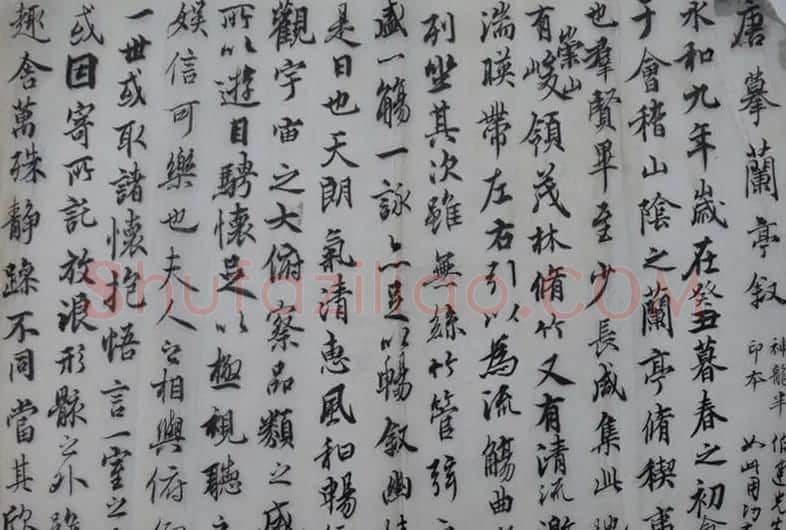 唐摹蘭亭叙
神龍半
印本
伯
先生
如此用
永和九年歲在癸丑暮春之初
于會稽山陰之蘭亭脩稧事
也羣賢畢至少長咸集此地
有崇山峻領茂林脩竹又有清流激
湍暎帶左右引以為流觴曲
列坐其次雖無絲竹管弦之
盛一觴一詠亦足以暢叙幽情
是日也天朗氣清惠風和暢
觀宇宙之大俯察品類之盛
所以遊目騁懷足以極視聽之
娛信可樂也夫人之相與俯仰
一世或取諸懷抱悟言一室之
或因寄所託放浪形骸之外雖
趣舍萬殊静躁不同當其欣
Shufaziliao.COM